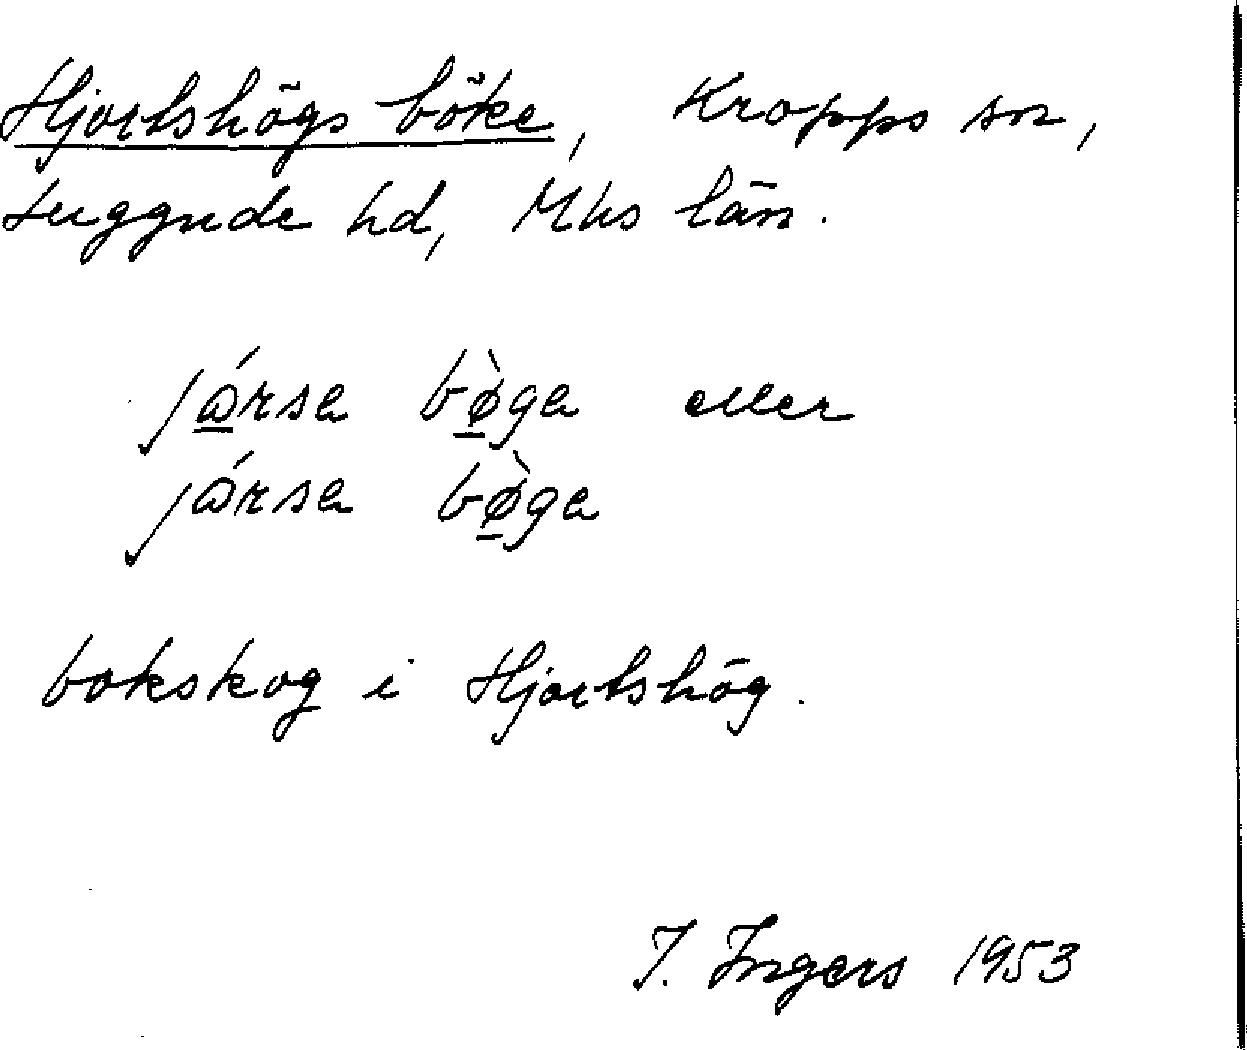 Hjortshögs böke, Kropps sn,
Luggude hd, Mhs län.
jårsa bø̀ga eller
jårsa bø̀ga
bokskog i Hjortshög.
I. Ingers 1953